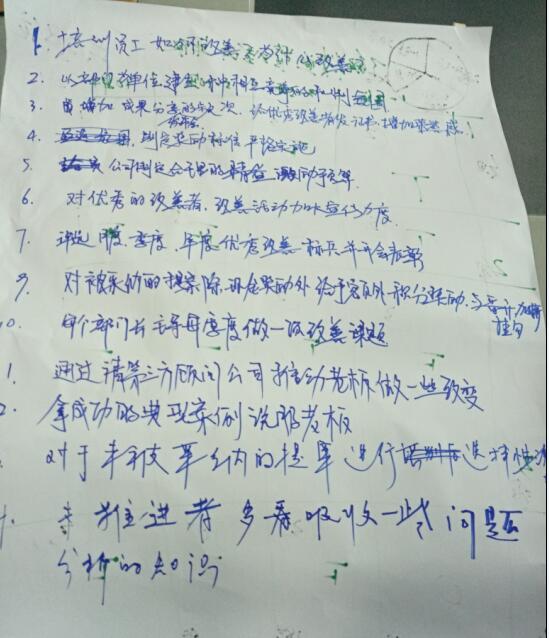 1. 培训员工如何改善
2. 以部门为单位建立
3. 增加成果分享的频次, 给优秀改善者发证书, 增加荣誉感
4. 制定奖励标准严格实施
5. 公司制定合理的
6. 对优秀的改善者、改善活动加大宣传力度
7. 评选月度、季度、年度优秀改善标兵并开会表彰
9. 对被采纳的提案除现金奖励外给予额外积分奖励, 与晋升加薪
挂勾
0. 每个部门长主导每季度做一次改善课题
1. 通过请第三方顾问公司推动老板做一些改变
2. 拿成功的典型案例说服老板
对于未被采纳的提案进行选择性
主推进者多看吸收一些问题
分析的知识